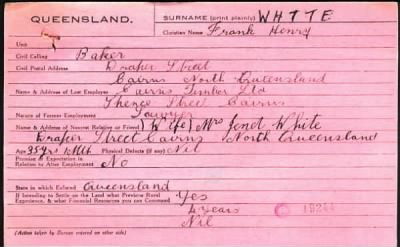 QUEENSLAND. SURNAME (print plainly) WHITE
Christian Name Frank Henry
Unit
Civil Calling Baker
Civil Postal Address Draper Street
Cairns North Queensland
Name & Address of Last Employer Cairns Timber Ltd
Spence Street Cairns
Nature of Former Employment Sawyer
Name & Address of Nearest Relative or Friend (Wife) Mrs Jenet White
Draper Street Cairns North Queensland
Age 35yrs 1Mth Physical Defects (if any) Nil
Promise or Expectation in
Relation to After Employment No
State in which Enlisted Queensland
If Intending to Settle on the Land what Previous Rural
Experience, & what Financial Resources you can Command Yes
4 years
Nil
(Action taken by Bureau entered on other side)